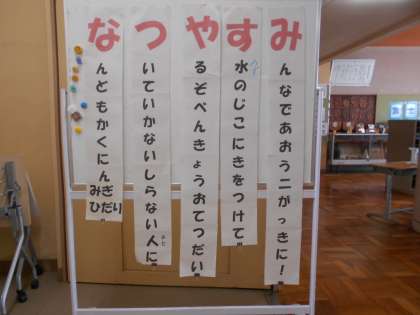 なつやすみ
んどもかくにんみぎひだり
いていかないしらない人に
るぞべんきょうおてつだい
水のじこにきをつけて
んなであおう二がっきに！